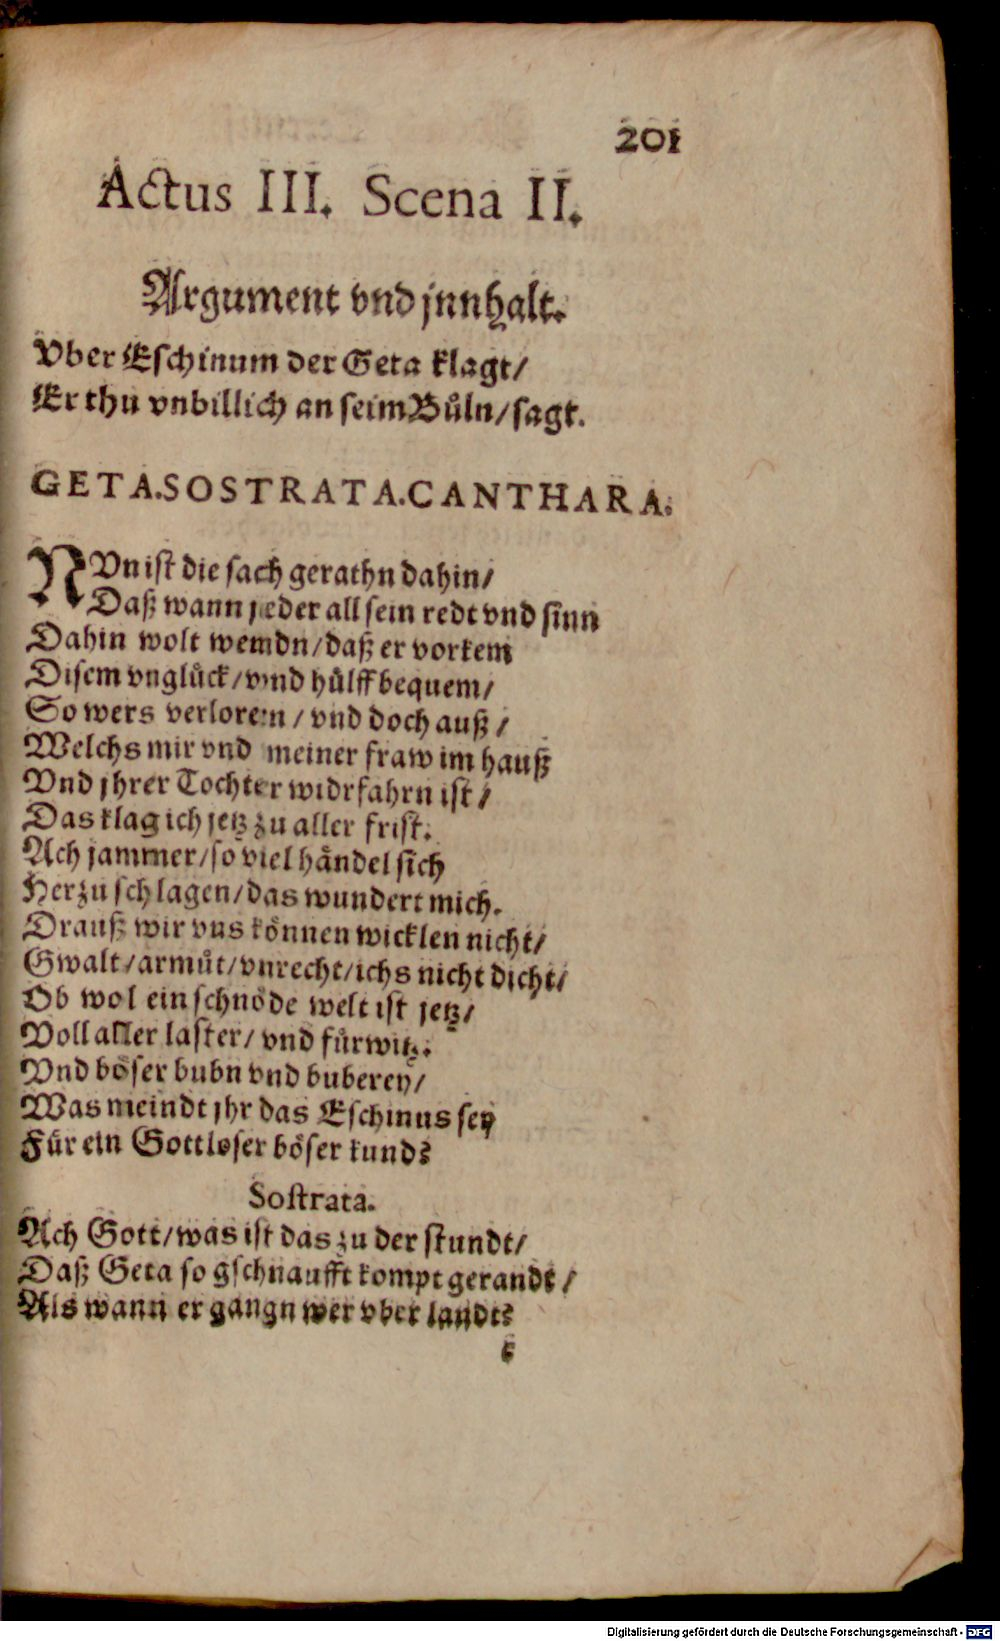 201
Actus III. Scena II.
Argument vnd jnnhalt.
Vber Eschinum der Geta klagt/
Er thu vnbillich an seim Bůln/sagt.
GETA.SOSTRATA.CANTHARA.
NVn ist die sach gerathn dahin/
Daß wann jeder all sein redt vnd sinn
Dahin wolt wemdn/daß er vorkem
Disem vnglück/vnnd hülff bequem/
So wers verloren/ vnd doch auß/
Welchs mir vnd meiner fraw im hauß
Vnd jhrer Tochter widrfahrn ist/
Das klag ich jetz zu aller frist.
Ach jammer/so viel händel sich
Herzu schlagen/das wundert mich.
Drauß wir vns können wicklen nicht/
Gwalt/armůt/vnrecht/ichs nicht dicht/
Ob wol ein schnöde welt ist jetz/
Voll aller laster/ vnd fürwitz.
Vnd böser bubn vnd buberey/
Was meindt jhr das Eschinus sey
Für ein Gottloser böser kund?
Sostrata.
Ach Gott/was ist das zu der stundt/
Daß Geta so gschnaufft kompt gerandt/
Als wann er gangn wer vber landt?
Digitalisierung gefördert durch die Deutsche Forschungsgemeinschaft - DFG